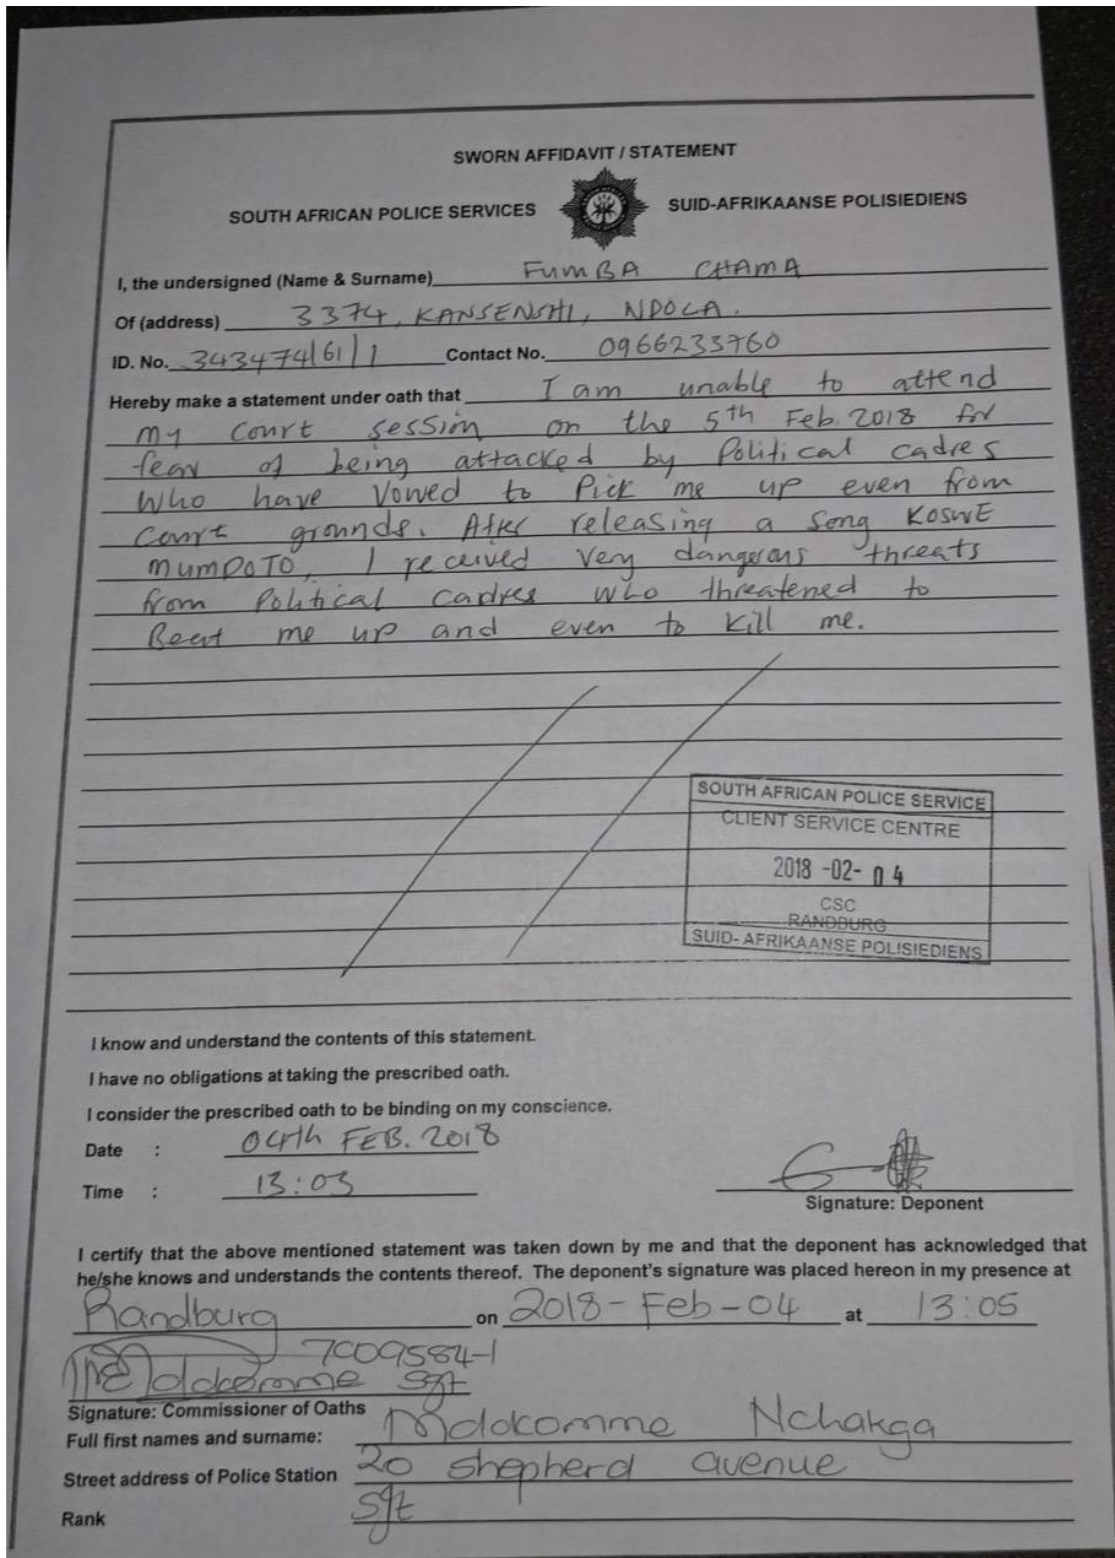 SWORN AFFIDAVIT / STATEMENT
SOUTH AFRICAN POLICE SERVICES SUID-AFRIKAANSE POLISIEDIENS
I, the undersigned (Name & Surname) FUMBA CHAMA
Of (address) 3374, KANSENSHI, NDOLA.
ID. No. 343474/61/1 Contact No. 0966233760
Hereby make a statement under oath that I am unable to attend
my court session on the 5th Feb. 2018 for
fear of being attacked by Political cadres
Who have Vowed to Pick me up even from
Court grounds. After releasing a song KOSWE
MUMPOTO, I received very dangerous threats
from Political cadres who threatened to
Beat me up and even to kill me.
SOUTH AFRICAN POLICE SERVICE
CLIENT SERVICE CENTRE
2018 -02- 04
CSC
RANDBURG
SUID-AFRIKAANSE POLISIEDIENS
I know and understand the contents of this statement.
I have no obligations at taking the prescribed oath.
I consider the prescribed oath to be binding on my conscience.
Date : 04th FEB. 2018
Time : 13:03
Signature: Deponent
I certify that the above mentioned statement was taken down by me and that the deponent has acknowledged that
he/she knows and understands the contents thereof. The deponent's signature was placed hereon in my presence at
Randburg on 2018-Feb-04 at 13:05
7009584-1
Sgt
Signature: Commissioner of Oaths
Full first names and surname: Nchakga
Street address of Police Station 20 shepherd avenue
Rank Sgt